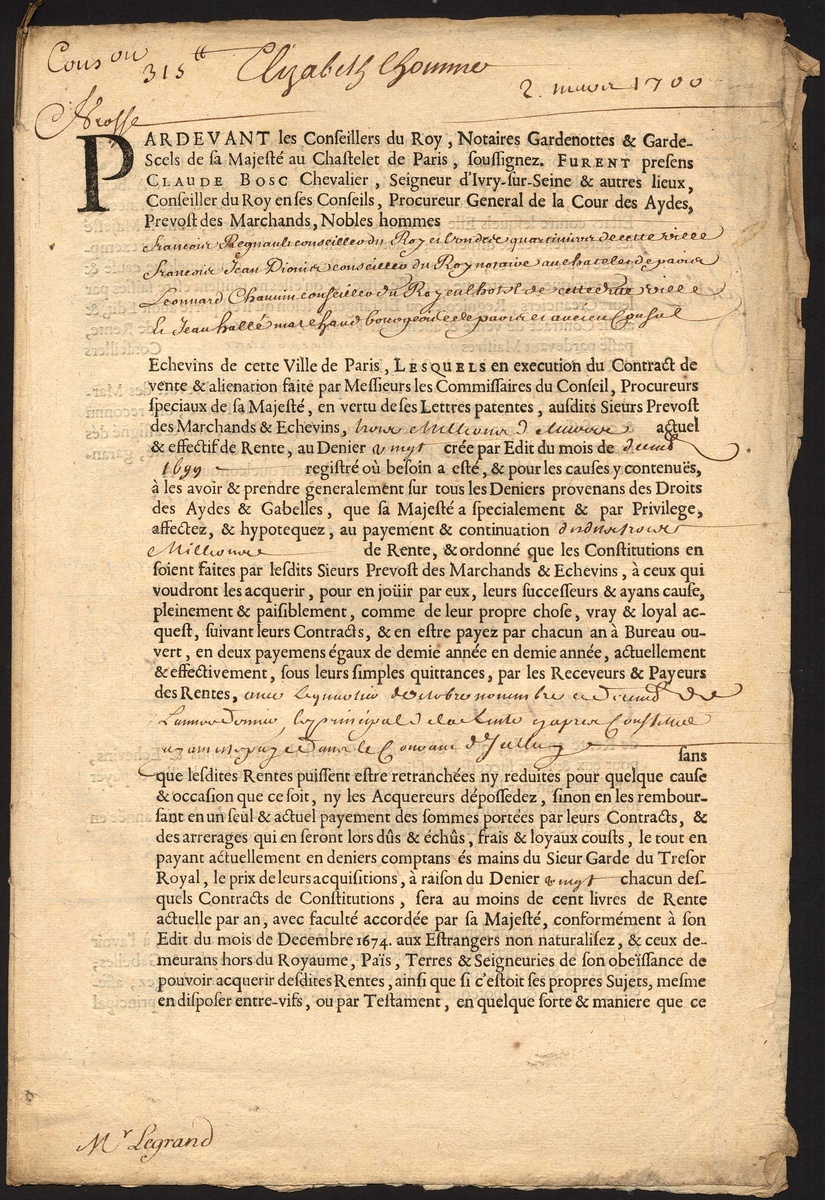 Cons on 315 tt Elizabeth Lhommer
2. mars 1700
PARDEVANT les Conseillers du Roy, Notaires Gardenottes & Garde-
Scels de sa Majesté au Chastelet de Paris, soussignez. FURENT presens
CLAUDE BOSC Chevalier, Seigneur d'Ivry-sur-Seine & autres lieux,
Conseiller du Roy en ses Conseils, Procureur General de la Cour des Aydes,
Prevost des Marchands, Nobles hommes
francois Regnault conseiller du Roy et quartinier de cette ville
francois Jean Dionis conseiller du Roy notaire au chatelet de paris
Leonnard Chauvin conseiller du Roy en lhotel de cette ville
Et Jean hallé marchand bourgeois de paris et ancien Consul
Echevins de cette Ville de Paris, LESQUELS en execution du Contract de
vente & alienation faite par Messieurs les Commissaires du Conseil, Procureurs
speciaux de sa Majesté, en vertu de ses Lettres patentes, ausdits Sieurs Prevost
des Marchands & Echevins, trois Millions de livres actuel
& effectif de Rente, au Denier vingt crée par Edit du mois de decemb
1699 registré où besoin a esté, & pour les causes y contenuës,
à les avoir & prendre generalement sur tous les Deniers provenans des Droits
des Aydes & Gabelles, que sa Majesté a specialement & par Privilege,
affectez, & hypotequez, au payement & continuation desdits trois
Millions de Rente, & ordonné que les Constitutions en
soient faites par lesdits Sieurs Prevost des Marchands & Echevins, à ceux qui
voudront les acquerir, pour en joüir par eux, leurs successeurs & ayans cause,
pleinement & paisiblement, comme de leur propre chose, vray & loyal ac-
quest, suivant leurs Contracts, & en estre payez par chacun an à Bureau ou-
vert, en deux payemens égaux de demie année en demie année, actuellement
& effectivement, sous leurs simples quittances, par les Receveurs & Payeurs
des Rentes, avec le quartier doctobre novembre et decemb de
Lannee derniere le principal de la Rente cy apres Constituee
ayant esté payé dans le Courant de
sans
que lesdites Rentes puissent estre retranchées ny reduites pour quelque cause
& occasion que ce soit, ny les Acquereurs dépossedez, sinon en les rembour-
sant en un seul & actuel payement des sommes portées par leurs Contracts, &
des arrerages qui en seront lors dûs & échûs, frais & loyaux cousts, le tout en
payant actuellement en deniers comptans és mains du Sieur Garde du Tresor
Royal, le prix de leurs acquisitions, à raison du Denier vingt chacun des-
quels Contracts de Constitutions, sera au moins de cent livres de Rente
actuelle par an, avec faculté accordée par sa Majesté, conformément à son
Edit du mois de Decembre 1674. aux Estrangers non naturalisez, & ceux de-
meurans hors du Royaume, Païs, Terres & Seigneuries de son obeïssance de
pouvoir acquerir desdites Rentes, ainsi que si c'estoit ses propres Sujets, mesme
en disposer entre-vifs, ou par Testament, en quelque sorte & maniere que ce
Mr Legrand